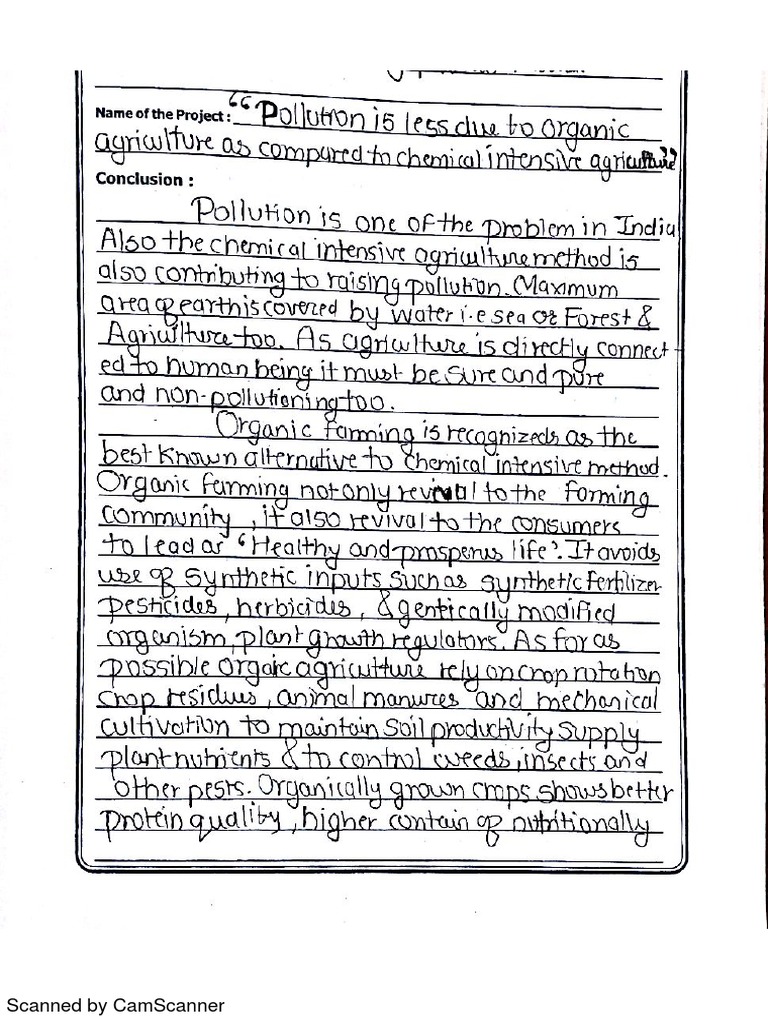 Name of the Project : "Pollution is less due to organic
agriculture as compared to chemical intensive agriculture"
Conclusion :
Pollution is one of the problem in India
Also the chemical intensive agriculture method is
also contributing to raising pollution. Maximum
area of earth is covered by water i.e sea or Forest &
Agriculture too. As agriculture is directly connect-
ed to human being it must be sure and pure
and non-pollutioning too.
Organic farming is recognizeds as the
best known alternative to chemical intensive method.
Organic farming not only revival to the farming
community, it also revival to the consumers
to lead a 'Healthy and prosperus life'. It avoids
use of synthetic inputs such as synthetic fertilizer
pesticides, herbicides, & gentically modified
organism, plant growth regulators. As for as
possible orgaic agriculture rely on crop rotation
crop residues, animal manures and mechanical
cultivation to maintain soil productivity supply
plant nutrients & to control weeds, insects and
other pests. Organically grown crops shows better
protein quality, higher contain of nutritionally
Scanned by CamScanner